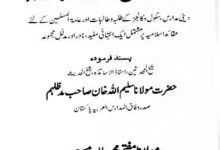 دینی مدارس، سکول و کالجز کے طلبہ و طالبات اور عامۃ المسلمین کے لئے
عقائد اسلامیہ پر مشتمل ایک انتہائی مفید، نادر اور مدلل مجموعہ
پسند فرمودہ
شیخ المحدثین، استاذ الاساتذہ، شیخ الحدیث
حضرت مولانا سلیم اللہ خان صاحب مدظلہم
صدر وفاق المدارس العربیہ پاکستان